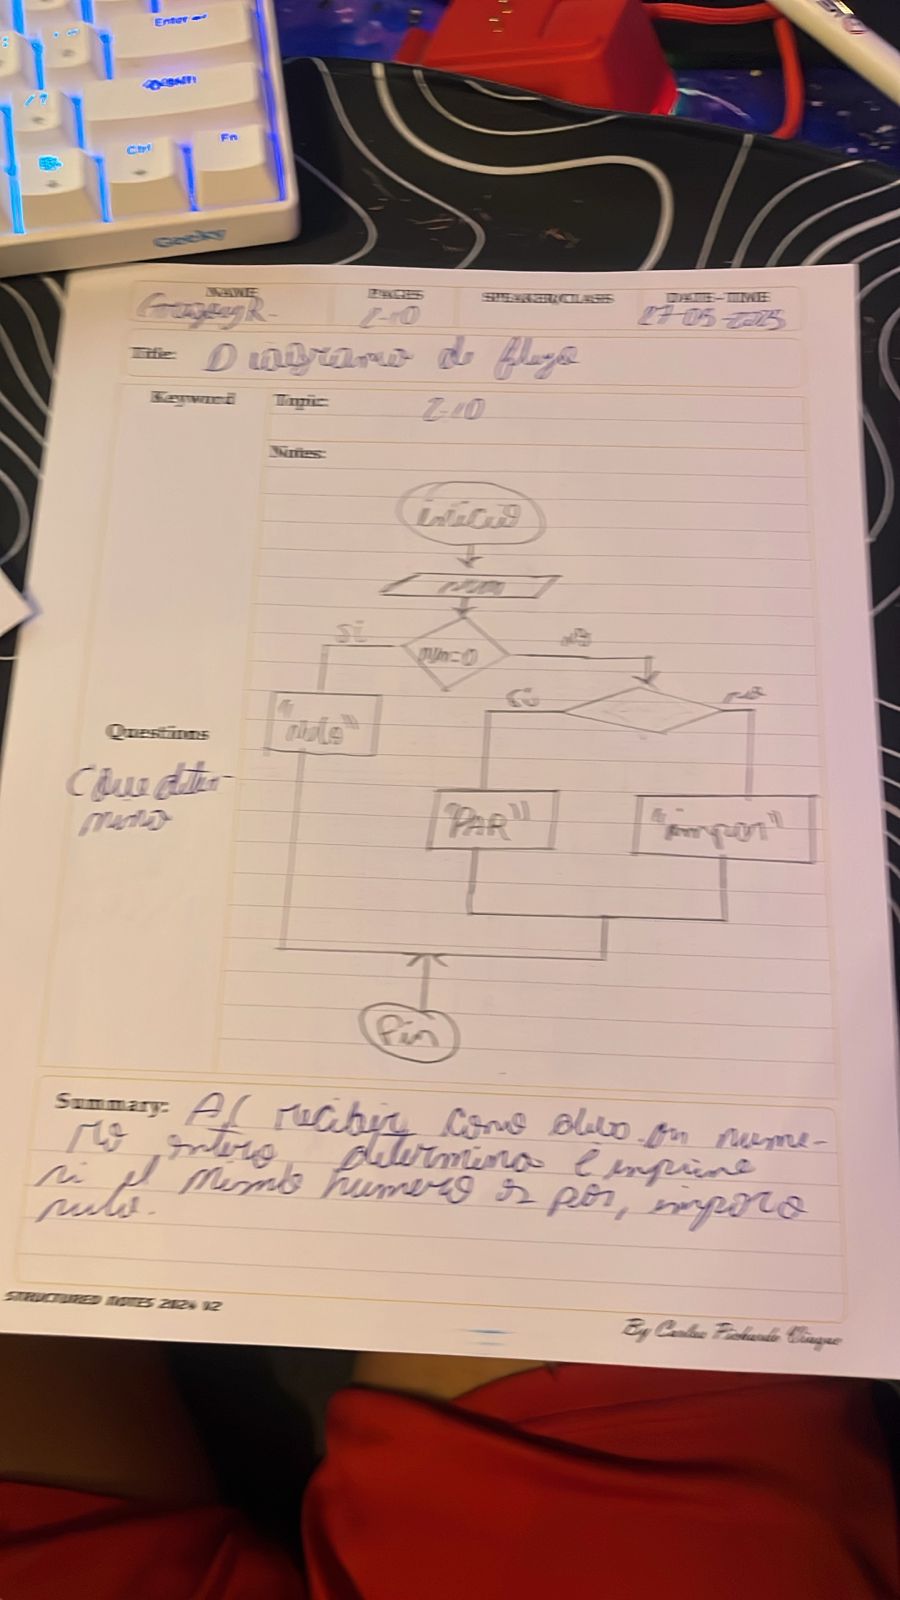 Enter
Shift
/ ?
Ctrl
Fn
Geeky
NAME
PAGES
SPEAKER/CLASS
DATE-TIME
2-10
27-05-2025
Title: Diagrama de flujo
Keyword
Topic: 2-10
Notes:
inicio
num
si
num=0
no
si
no
"nulo"
Questions
"PAR"
"impar"
Fin
Summary: Al recibir como dato un nume-
ro entero determina e imprime
si el mismo numero es par, impar o
nulo.
STRUCTURED NOTES 2024 V2
By Carlos Pichardo Vinque